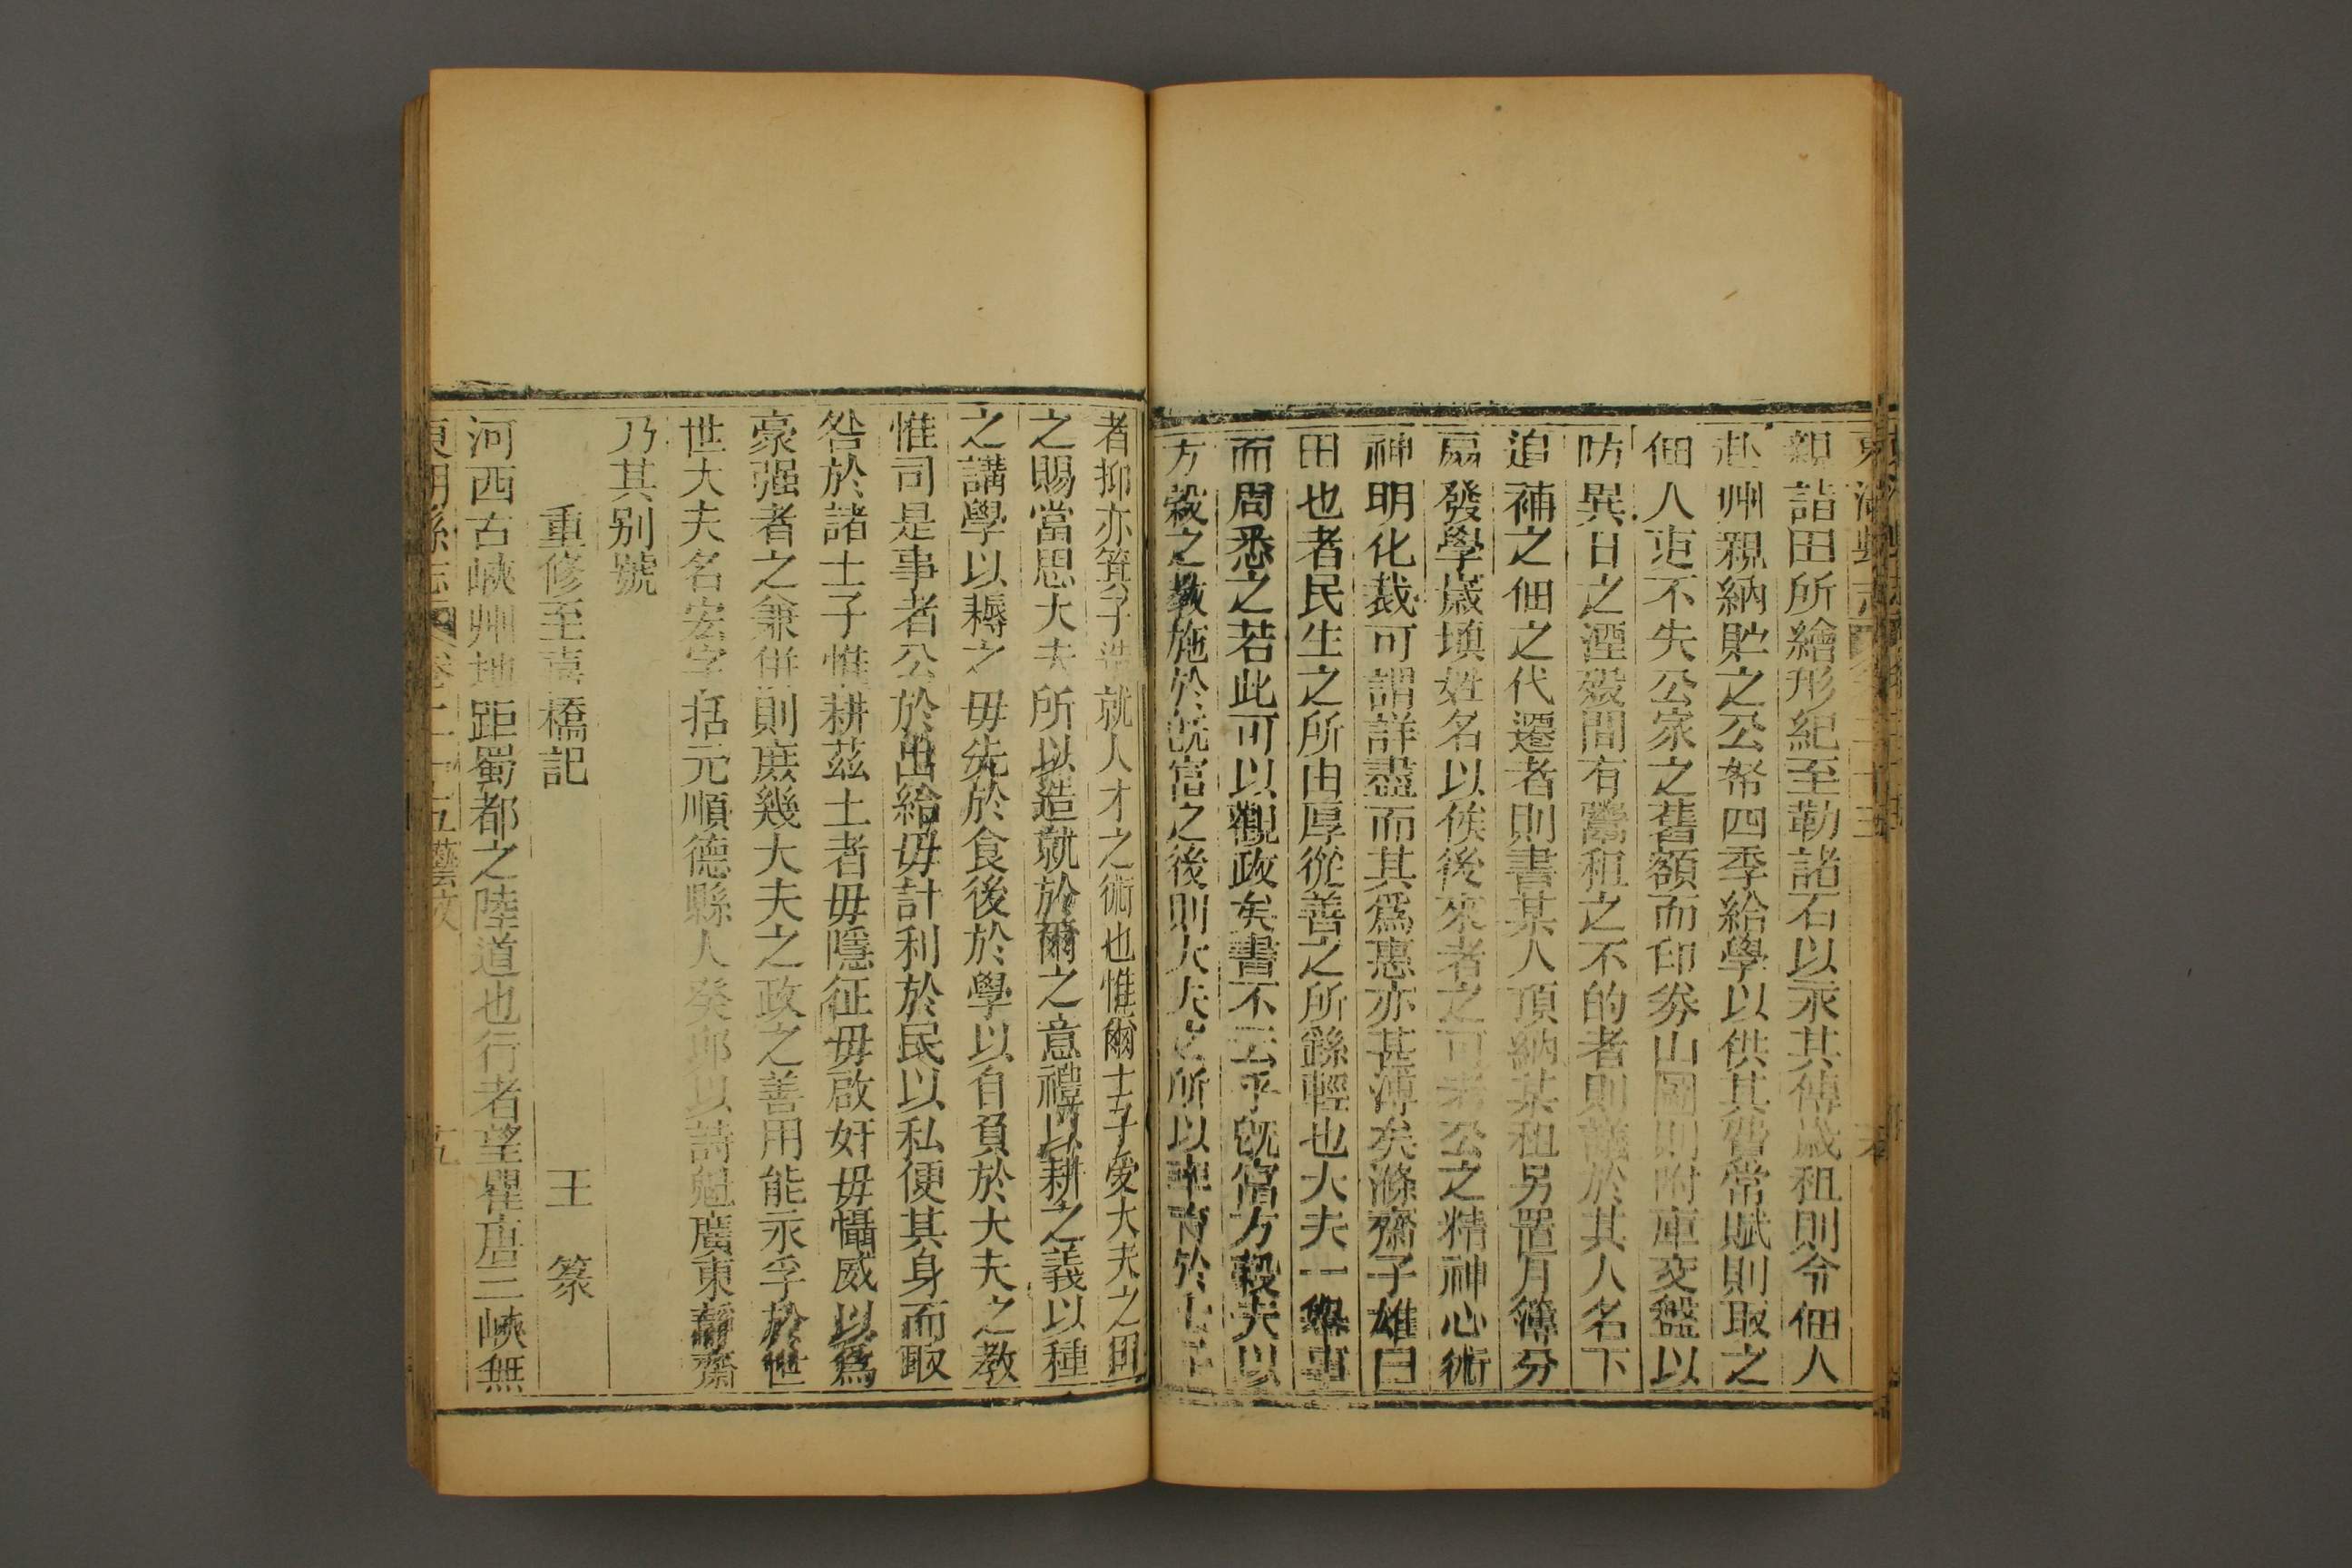 親詣田所繪形紀至勒諸石以永其傳歲租則令佃人
赴州親納貯之公帑四季給學以供其費常賦則取之
佃人吏不失公家之舊額而印券山圖則附庫交盤以
防異日之湮歿間有鬻租之不的者則議於其人名下
追補之佃之代遷者則書某人頂納某租另置月簿分
扇發學歲填姓名以俟後來者之可考公之精神心術
神明化裁可謂詳盡而其爲惠亦甚溥矣滌齋子雄曰
田也者民生之所由厚從善之所繇輕也大夫一舉事
而周悉之若此可以觀政矣書不云乎旣富方穀夫以
方穀之教施於旣富之後則大夫之所以率育於士子
者抑亦箕子造就人才之術也惟爾士子愛大夫之田
之賜當思大夫所以造就於爾之意禮以耕之義以種
之講學以耨之毋先於食後於學以自負於大夫之教
惟司是事者公於出給毋計利於民以私便其身而取
咎於諸士子惟耕茲土者毋隱征毋啟奸毋懾威以爲
豪强者之兼併則庶幾大夫之政之善用能永孚於世
世大夫名宏字括元順德縣人癸卯以詩魁廣東靜齋
乃其别號
重修至喜橋記 王篆
河西古峽州地距蜀都之陸道也行者望瞿唐三峽無
東湖縣志 卷二十五 藝文 五